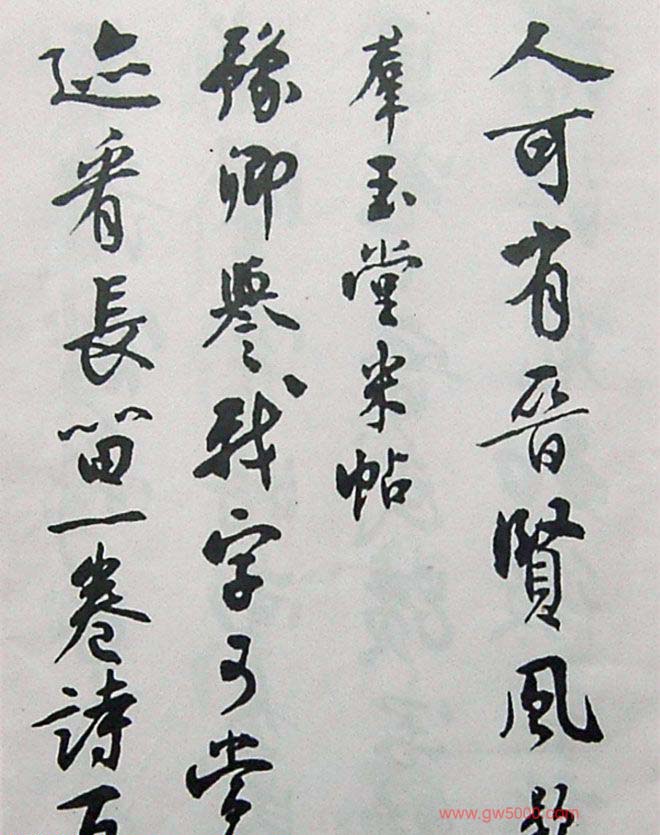 人可有晉賢風
羣玉堂米帖
豫卿譽我字可當
迹看長留一卷詩百
www.gw5000.com